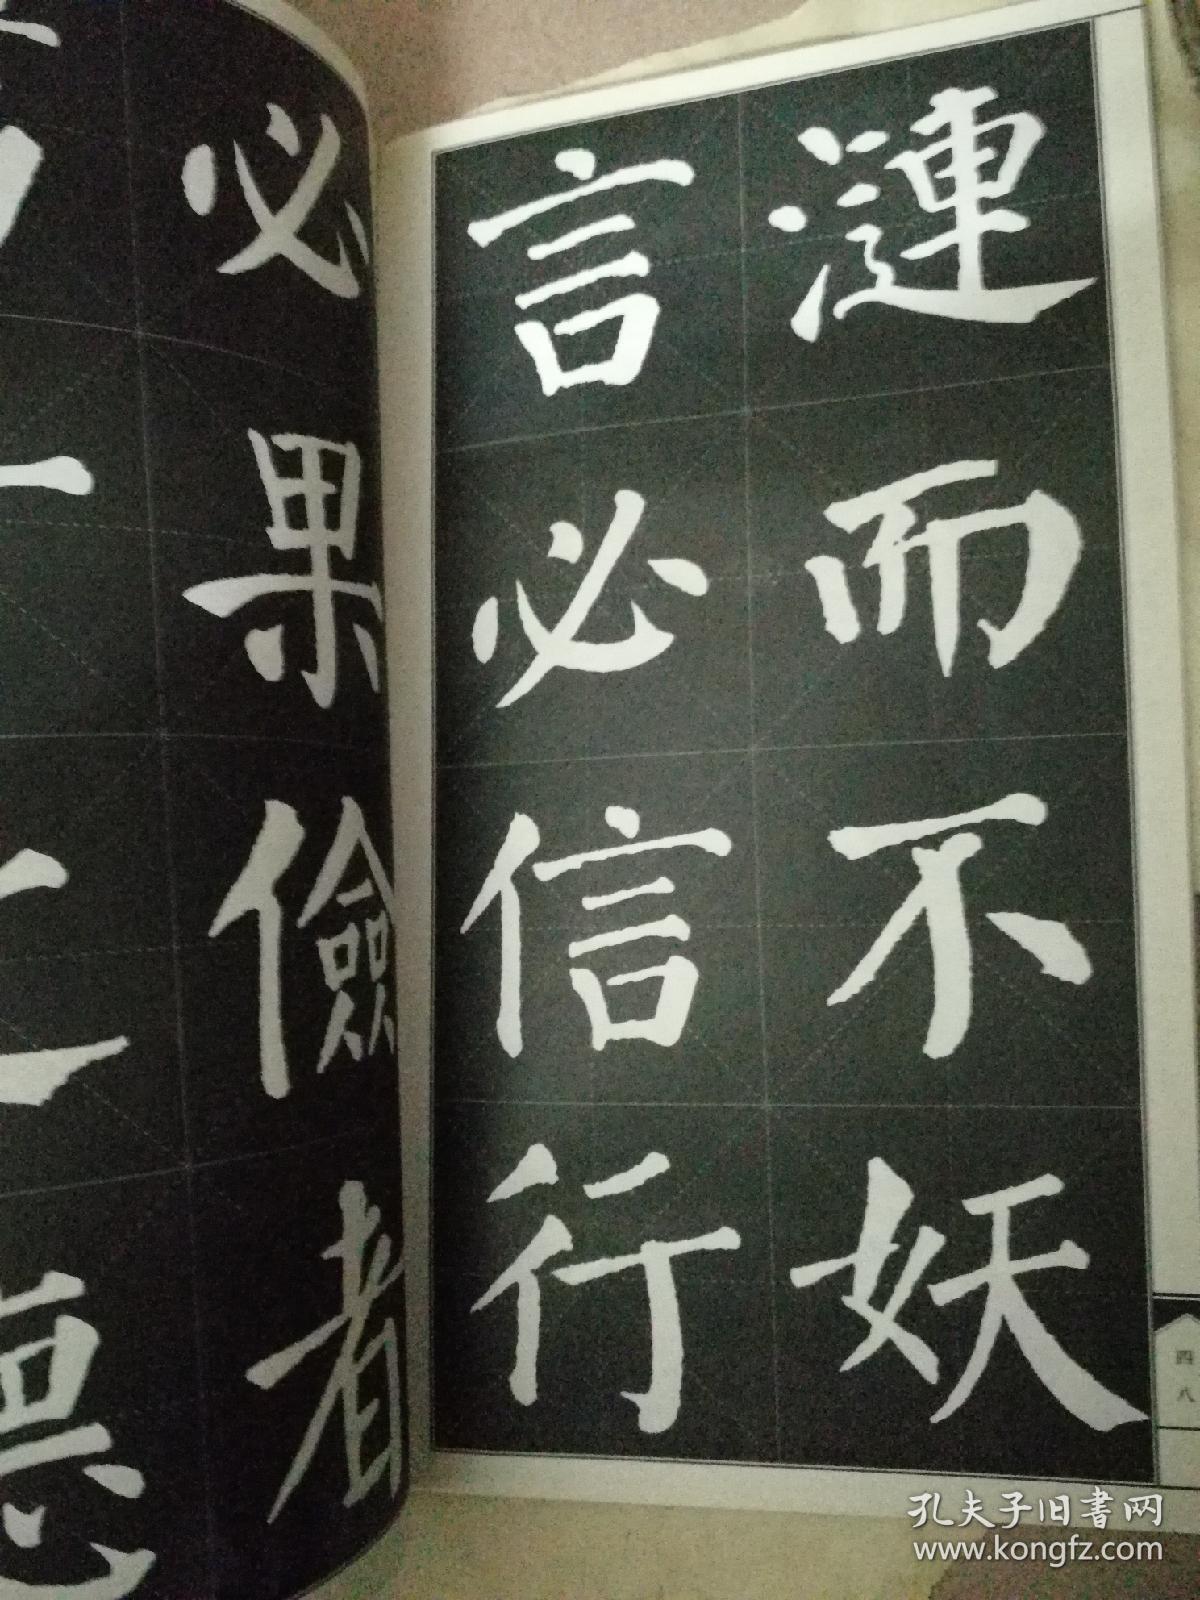 漣而不妖
言必信行
必果儉者
德
四八
孔夫子旧書网
www.kongfz.com